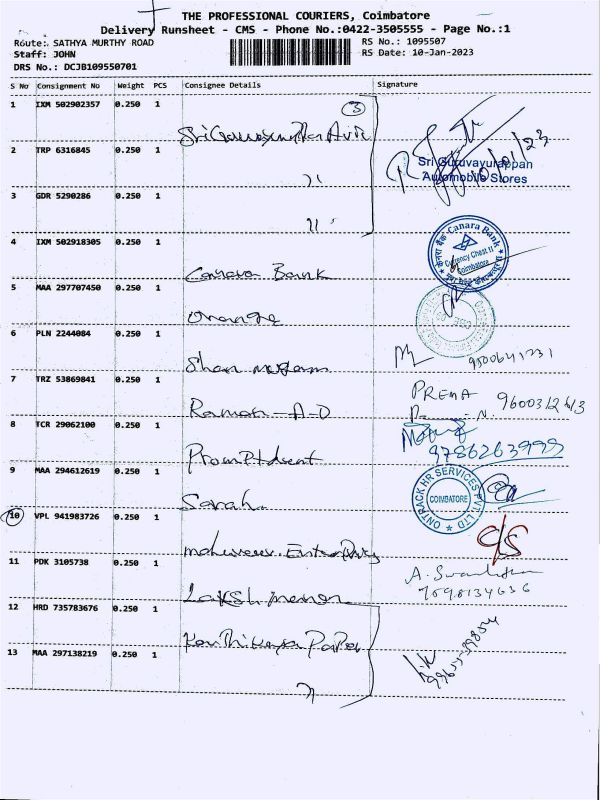 THE PROFESSIONAL COURIERS, Coimbatore
Delivery Runsheet - CMS - Phone No.:0422-3505555 - Page No.:1
Route: SATHYA MURTHY ROAD
RS No.: 1095507
Staff: JOHN
RS Date: 10-Jan-2023
DRS No.: DCJB109550701
S No Consignment No Weight PCS Consignee Details Signature
1 IXM 502902357 0.250 1
3
2 TRP 6316845 0.250 1
10/01/23
Sri Guruvayurappan
Automobile Stores
3 GDR 5290286 0.250 1
4 IXM 502918305 0.250 1
Canara Bank
Canara Bank
Currency Chest II
Coimbatore
5 MAA 297707450 0.250 1
Orange
6 PLN 2244084 0.250 1
7 TRZ 53869841 0.250 1
Raman-A-D
PREMA
8 TCR 29062100 0.250 1
9786263999
9 MAA 294612619 0.250 1
Sarah
ONTRACK HR SERVICES PVT. LTD
COIMBATORE
10 VPL 941983726 0.250 1
11 PDK 3105738 0.250 1
12 HRD 735783676 0.250 1
13 MAA 297138219 0.250 1